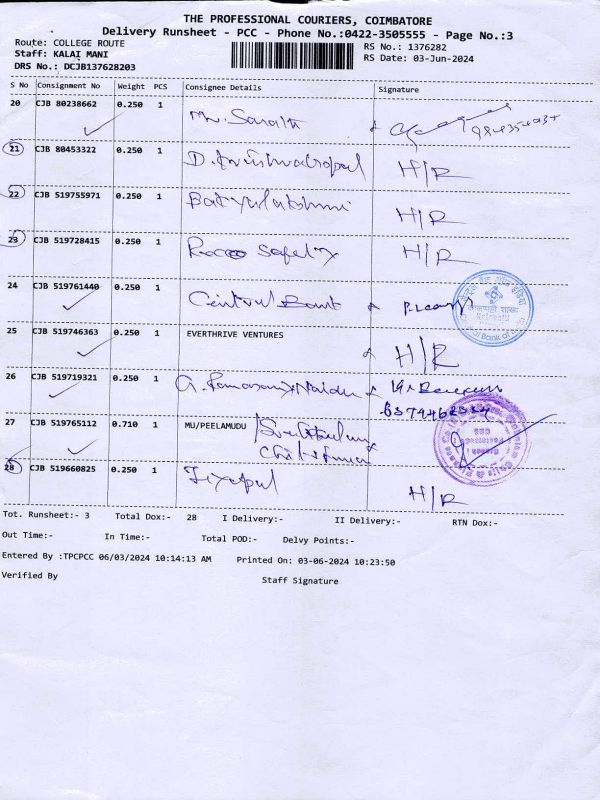 THE PROFESSIONAL COURIERS, COIMBATORE
Delivery Runsheet - PCC - Phone No.:0422-3505555 - Page No.:3
Route: COLLEGE ROUTE
RS No.: 1376282
Staff: KALAI MANI
RS Date: 03-Jun-2024
DRS No.: DCJB137628203
S No Consignment No Weight PCS Consignee Details Signature
20 CJB 80238662 0.250 1 Mr. Sarath
21 CJB 80453322 0.250 1 H/R
22 CJB 519755971 0.250 1 H/R
23 CJB 519728415 0.250 1 Rocco Safety H/R
24 CJB 519761440 0.250 1 Central Bank
25 CJB 519746363 0.250 1 EVERTHRIVE VENTURES H/R
26 CJB 519719321 0.250 1 Naidu
27 CJB 519765112 0.710 1 MU/PEELAMUDU
28 CJB 519660825 0.250 1 H/R
Tot. Runsheet:- 3 Total Dox:- 28 I Delivery:- II Delivery:- RTN Dox:-
Out Time:- In Time:- Total POD:- Delvy Points:-
Entered By :TPCPCC 06/03/2024 10:14:13 AM Printed On: 03-06-2024 10:23:50
Verified By Staff Signature